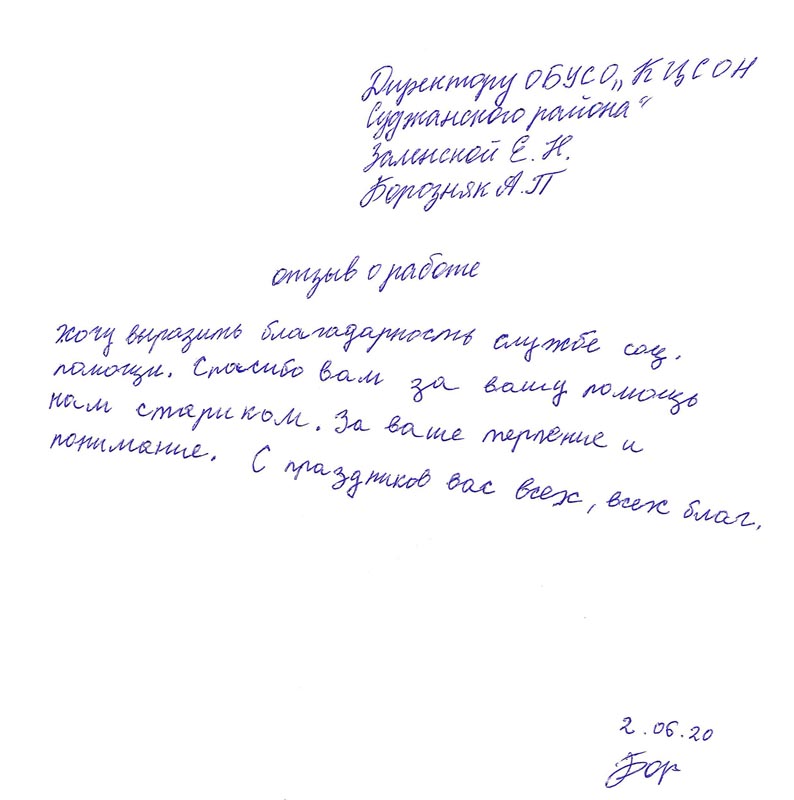 Директору ОБУСО „КЦСОН
Суджанского района"
Заленской Е. Н.
Борозняк А.П
отзыв о работе
хочу выразить благадарность службе соц.
помощи. Спасибо вам за вашу помощь
нам стариком. За ваше терпение и
понимание. С праздников вас всех, всех благ.
2.06.20
Бор